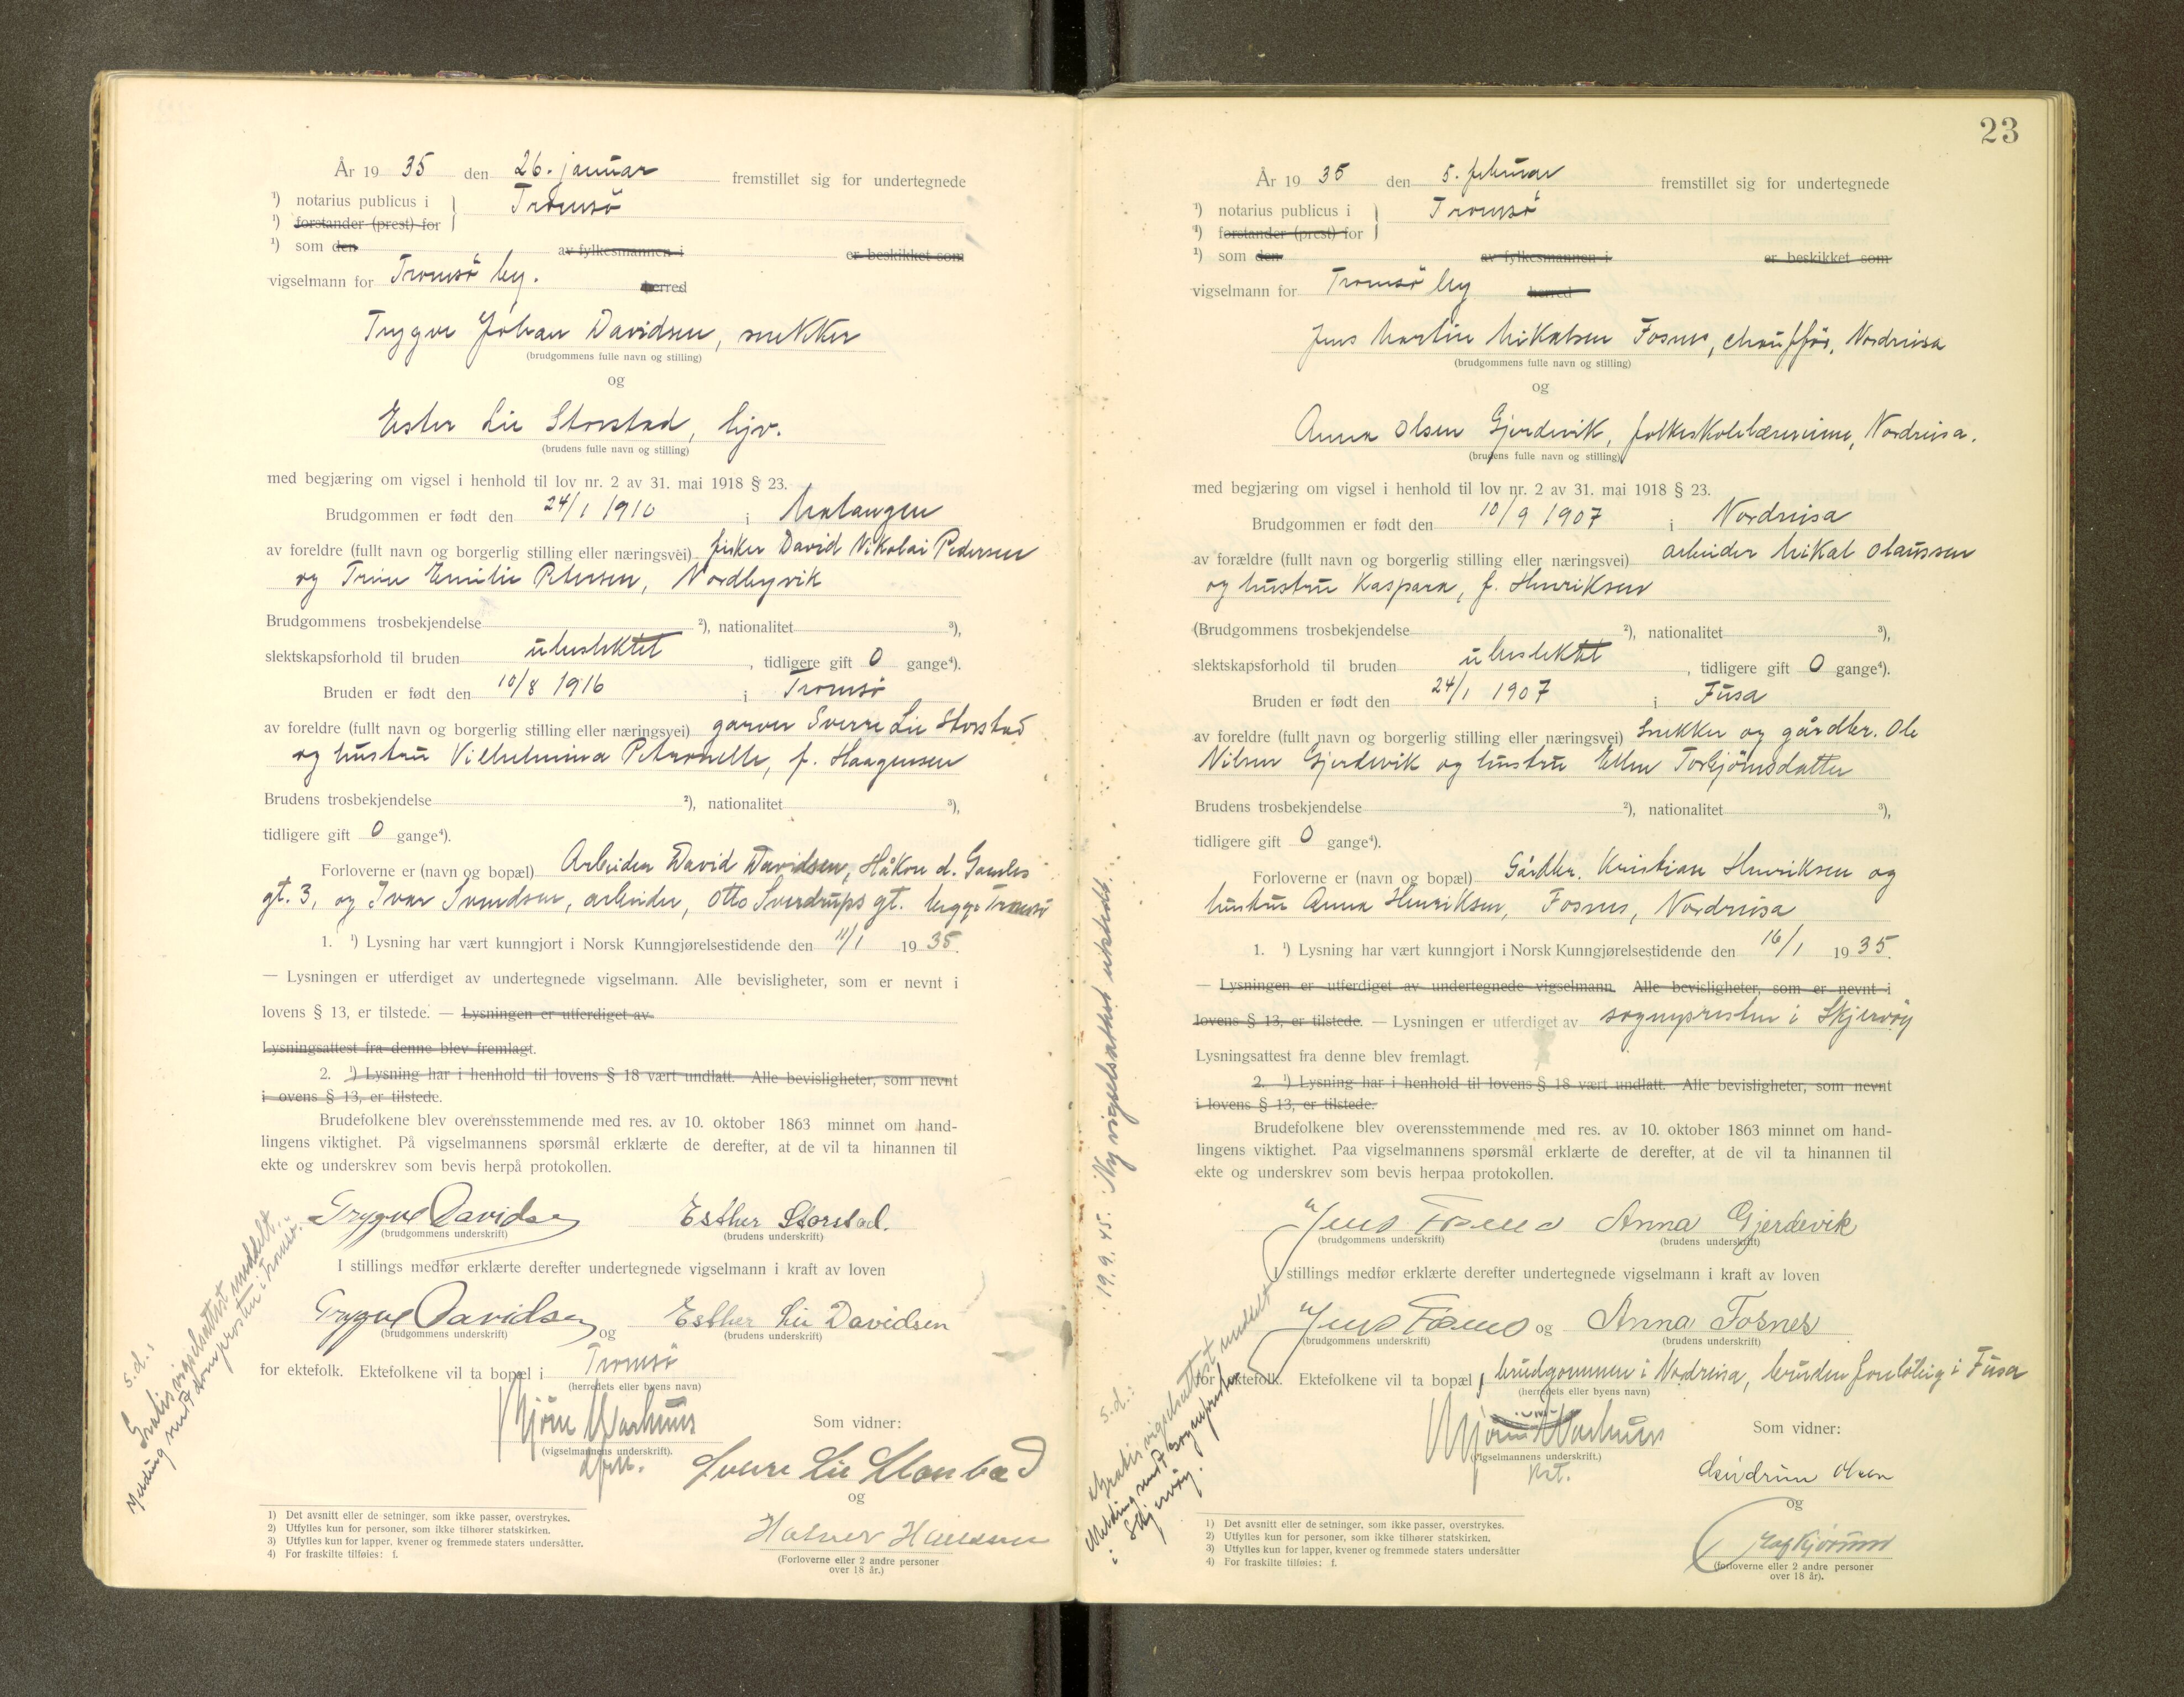 År 19 35 den 26. januar fremstillet sig for undertegnede
¹) notarius publicus i } Tromsö
¹) forstander (prest) for
¹) som den av fylkesmannen i er beskikket som
vigselmann for Tromsö by. herred
Trygve Johan Davidsen, snekker
(brudgommens fulle navn og stilling)
og
Ester Lie Storstad, hjv.
(brudens fulle navn og stilling)
med begjæring om vigsel i henhold til lov nr. 2 av 31. mai 1918 § 23.
Brudgommen er født den 24/1 1910 i Malangen
av foreldre (fullt navn og borgerlig stilling eller næringsvei) fisker David Nikolai Pedersen
og Trine Emilie Petersen, Nordbyvik
Brudgommens trosbekjendelse ²), nationalitet ³),
slektskapsforhold til bruden ubeslektet, tidligere gift 0 gange⁴).
Bruden er født den 10/8 1916 i Tromsö
av foreldre (fullt navn og borgerlig stilling eller næringsvei) garver Sverre Lie Storstad
og hustru Vilhelmina Petronelle, f. Haagensen
Brudens trosbekjendelse ²), nationalitet ³),
tidligere gift 0 gange⁴).
Forloverne er (navn og bopæl) Arbeider David Davidsen, Håkon d. Gamles
gt. 3, og Ivar Svendsen, arbeider, Otto Sverdrups gt. begge Tromsö
1. ¹) Lysning har vært kunngjort i Norsk Kunngjørelsestidende den 11/1 19 35.
— Lysningen er utferdiget av undertegnede vigselmann. Alle bevisligheter, som er nevnt i
lovens § 13, er tilstede. — Lysningen er utferdiget av
Lysningsattest fra denne blev fremlagt.
2. ¹) Lysning har i henhold til lovens § 18 vært undlatt. Alle bevisligheter, som nevnt
i ovens § 13, er tilstede.
Brudefolkene blev overensstemmende med res. av 10. oktober 1863 minnet om hand-
lingens viktighet. På vigselmannens spørsmål erklærte de derefter, at de vil ta hinannen til
ekte og underskrev som bevis herpå protokollen.
Trygve Davidsen Esther Storstad.
(brudgommens underskrift) (brudens underskrift)
I stillings medfør erklærte derefter undertegnede vigselmann i kraft av loven
Trygve Davidsen og Esther Lie Davidsen
(brudgommens underskrift) (brudens underskrift)
for ektefolk. Ektefolkene vil ta bopæl i Tromsö
(herredets eller byens navn)
Som vidner:
(vigselmannens underskrift).
Sverre Lie Storstad
og
Halvor Hansen
(Forloverne eller 2 andre personer
over 18 år.)
s.d.:
Gratis vigselsattest meddelt.
Melding sendt domprosten i Tromsö.
1) Det avsnitt eller de setninger, som ikke passer, overstrykes.
2) Utfylles kun for personer, som ikke tilhører statskirken.
3) Utfylles kun for lapper, kvener og fremmede staters undersåtter.
4) For fraskilte tilføies: f.
23
År 19 35 den 5. februar fremstillet sig for undertegnede
¹) notarius publicus i } Tromsö
¹) forstander (prest) for
¹) som den av fylkesmannen i er beskikket som
vigselmann for Tromsö by herred
Jens Martin Mikalsen Fosnes, chaufför, Nordreisa
(brudgommens fulle navn og stilling)
og
Anna Olsen Gjerdevik, folkeskolelærerinne, Nordreisa.
(brudens fulle navn og stilling)
med begjæring om vigsel i henhold til lov nr. 2 av 31. mai 1918 § 23.
Brudgommen er født den 10/9 1907 i Nordreisa
av forældre (fullt navn og borgerlig stilling eller næringsvei) arbeider Mikal Olaussen
og hustru Kaspara, f. Henriksen
(Brudgommens trosbekjendelse ²), nationalitet ³),
slektskapsforhold til bruden ubeslektet, tidligere gift 0 gange⁴).
Bruden er født den 24/1 1907 i Fusa
av foreldre (fullt navn og borgerlig stilling eller næringsvei) Snekker og gårdbr. Ole
Nilsen Gjerdevik og hustru Ellen Torbjörnsdatter
Brudens trosbekjendelse ²), nationalitet ³),
tidligere gift 0 gange⁴).
Forloverne er (navn og bopæl) Gårdbr. Kristian Henriksen og
hustru Anna Henriksen, Fosnes, Nordreisa
1. ¹) Lysning har vært kunngjort i Norsk Kunngjørelsestidende den 16/1 19 35.
— Lysningen er utferdiget av undertegnede vigselmann. Alle bevisligheter, som er nevnt i
lovens § 13, er tilstede. — Lysningen er utferdiget av sognepresten i Skjervöy
Lysningsattest fra denne blev fremlagt.
2. ¹) Lysning har i henhold til lovens § 18 vært undlatt. Alle bevisligheter, som nevnt
i lovens § 13, er tilstede.
Brudefolkene blev overensstemmende med res. av 10. oktober 1863 minnet om hand-
lingens viktighet. Paa vigselmannens spørsmål erklærte de derefter, at de vil ta hinannen til
ekte og underskrev som bevis herpaa protokollen.
Jens Fosnes Anna Gjerdevik
(brudgommens underskrift) (brudens underskrift)
I stillings medfør erklærte derefter undertegnede vigselmann i kraft av loven
Jens Fosnes og Anna Fosnes
(brudgommens underskrift) (brudens underskrift)
for ektefolk. Ektefolkene vil ta bopæl, brudgommen i Nordreisa, bruden foreløbig i Fusa
(herredets eller byens navn)
Som vidner:
(vigselmannens underskrift.)
Olsen
og
(forloverne eller 2 andre personer
over 18 år).
19.9.45. Ny vigselsattest utstedt.
s.d.:
Gratis vigselsattest meddelt
Melding sendt sognepresten
i Skjervöy.
1) Det avsnitt eller de setninger, som ikke passer, overstrykes.
2) Utfylles kun for personer, som ikke tilhører statskirken.
3) Utfylles kun for lapper, kvener og fremmede staters undersåtter
4) For fraskilte tilføies: f.